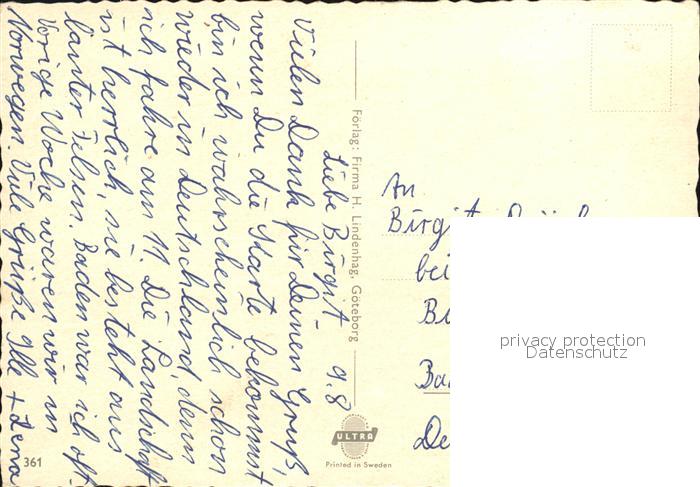 Liebe Birgit 9.8
Vielen Dank für Deinen Gruß,
wenn Du die Karte bekommst
bin ich wahrscheinlich schon
wieder in Deutschland, denn
ich fahre am 11. Die Landschaft
ist herrlich, sie besteht aus
lauter Felsen. Baden war ich oft.
Vorige Woche waren wir in
Norwegen. Viele Grüße alle +
Förlag: Firma H. Lindenhag, Göteborg
ULTRA
Printed in Sweden
361
An
Birgit
bei
privacy protection
Datenschutz